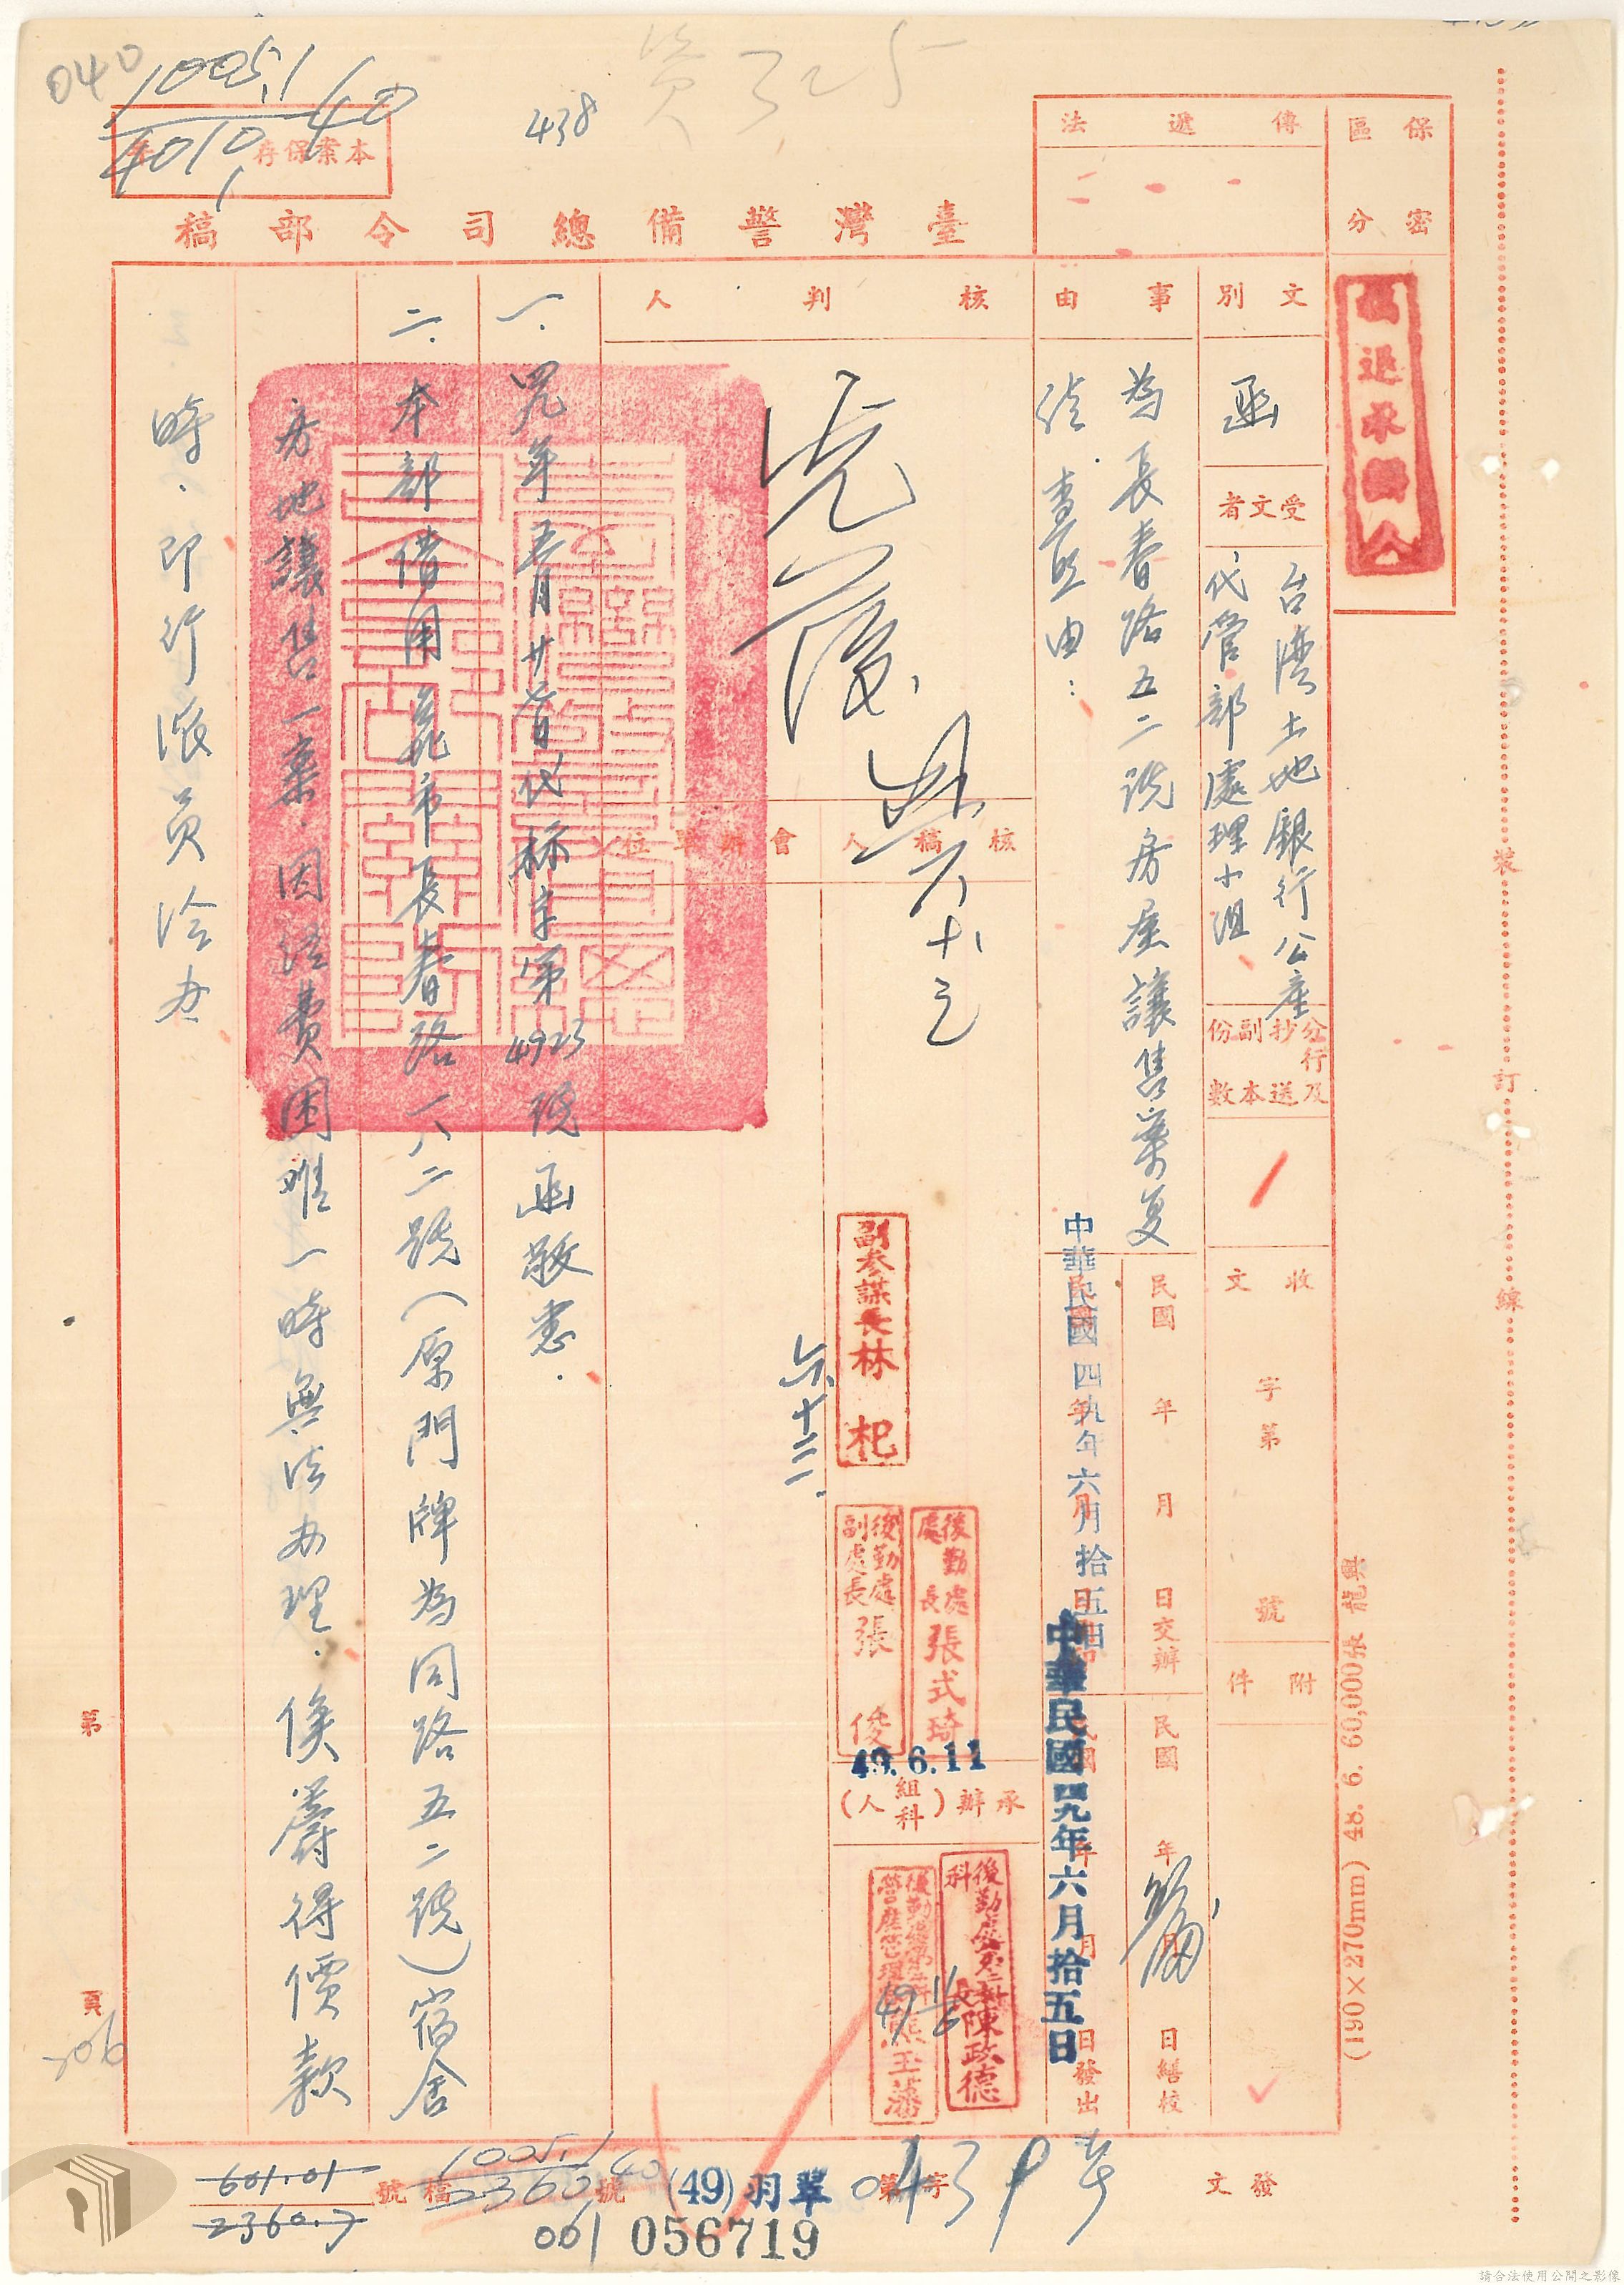 040
10051/40
4010/1
本案保存年
438
資325
傳遞法
保密區分
臺灣警備總司令部稿
稿退承辦人
文別
函
受文者
台灣土地銀行公產
代管部處理小組
分行及抄送副本份數
收文
字第
號
附件
事由
為長春路五二號房屋讓售案復
請查照由：
民國
年
月
日交辦
民國
年
月
日繕校
中華民國四玖年六月拾五日
中華民國四九年六月拾五日
日發出
核判人
六十三
核稿人
會辦單位
副參謀長林 杞
六十二
後勤處處長張式琦
後勤處副處長張 俊
49.6.11
承辦(組科人)
後勤處第三科科長陳政德
一.四九年五月廿六日代標字第4923號函敬悉.
二.本部借用臺北市長春路一八二號(原門牌為同路五二號)宿舍
房地讓售一案.因經費困難一時無法办理.俟籌得價款
時.即行派員洽办
第
頁
206
裝
訂
線
(190×270mm) 48. 6. 60,000張 龍興
發文
字第
0439
(49)羽翠
號
稿號
10051/40
2360
601.01
2360.7
001
056719
請合法使用公開之影像